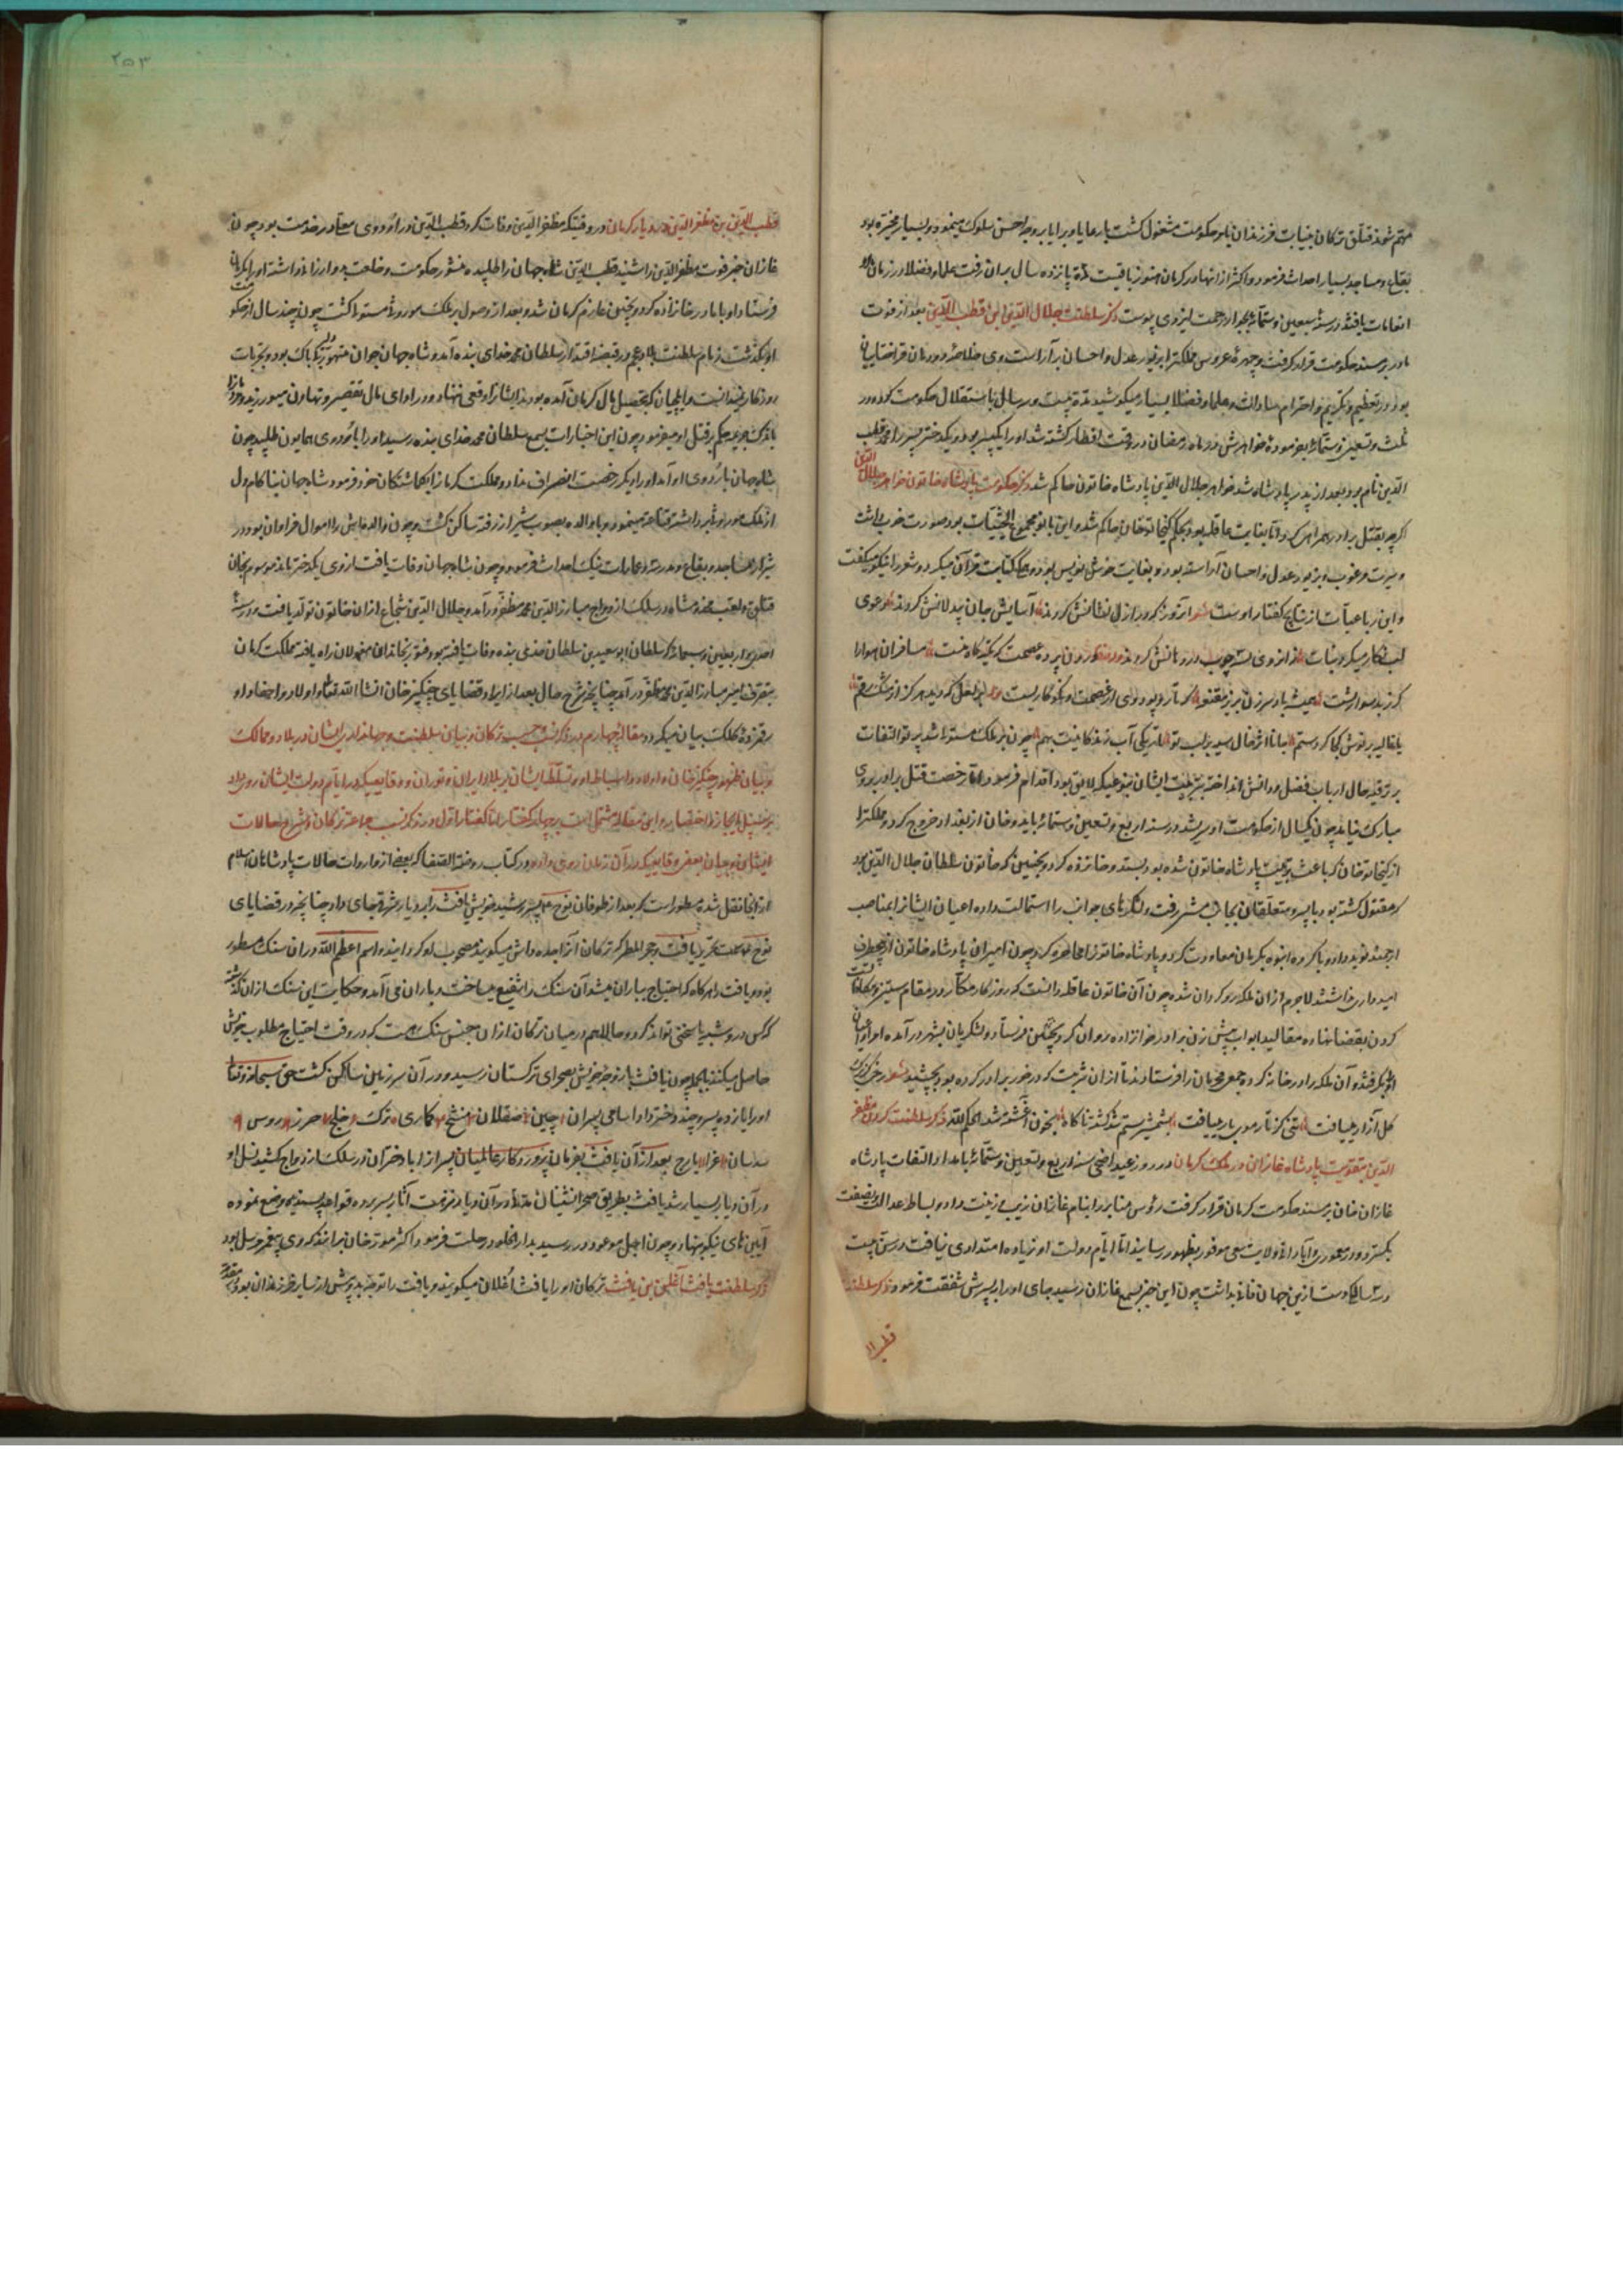 مهتم شوند قتلق ترکان بنیابت فرزندان بامر حکومت مشغول گشت با رعایا و برایا بر وجه احسن سلوک مینمود و بسیار مخیره بود
بقاع و مساجد بسیار احداث فرمود و اکثر از انها در کرمان هنوز باقیست مدة پانزده سال بر ان رفت علما و فضلا در زمان او
انعامات یافتند در سنه سبعین و ستمائه بجوار رحمت ایزدی پیوست ذکر سلطنت جلال الدین ابن قطب الدین بعد از فوت
مادر بر مسند حکومت قرار گرفت و چهره عروس مملکت را بزیور عدل و احسان برآراست وی خلاصه دودمان قراختاییان
بود در تعظیم و تکریم و احترام سادات و علما و فضلا بسیار میکوشید مدة بیست و سه سال باستقلال حکومت کرد و در
ثلث و تسعین و ستمائه بفرموده خواهرش در ماه رمضان در وقت افطار کشته شد او را یک پسر بود و یک دختر پسر را محمد قطب
الدین نام بود بعد از پدر پادشاه شد خواهر جلال الدین پادشاه خاتون حاکم شد ذکر حکومت پادشاه خاتون خواهر جلال الدین
اگرچه بقتل برادر همراهی کرد اما بغایت عاقله بود بحکم کیخاتو خان حاکم شد و این بانو مجموع الحیثیات بود صورت خوب داشت
و سیرت مرغوب و بزیور عدل و احسان آراسته بود و بغایت خوش نویس بود و همگی کتابت قرآن میکرد و شعر را نیکو میگفت
و این رباعیات از نتایج گفتار اوست شعر آنروز که در ازل نشانش کردند آسایش جان بیدلانش کردند دعوی
لب نگار میکرد نبات زانروی سه چوب در دهانش کردند درون پرده عصمت که تکیه گاه منست مسافران هوا را
گذر بدشواریست همیشه باد سر زن بزیر مقنعه که تار و پود وی از عصمت و نکوکاریست بر لعل که دید هرگز از مشک رقم
یا غالیه بر نوش کجا کرد ستم جانا اثر خال سیه بر لب تو تاریکی آب زندگانیست بهم چون بر ملک مستولی شد پرتو التفات
بر ترفیه حال ارباب فضل و دانش انداخته بتربیت ایشان بنوعیکه لایق بود اقدام فرمود اما رخصت قتل برادر بروی
مبارک نیامد چون یکسال از حکومت او سپری شد در سنه اربع و تسعین و ستمائه بایدو خان از بغداد خروج کرد و مملکت را
از کیخاتو خان که باعث تربیت پادشاه خاتون شده بود بستد و خانزاده کردوچین که خاتون سلطان جلال الدین بود
که مقتول گشته بود با پسر و متعلقان بجانب مشرفت و لشکرهای جوانب را استمالت داده اعیان ایشانرا بمناصب
ارجمند نوید داد و با گروه انبوه بکرمان معاودت کرد و پادشاه خاتون را محاصره کرد چون امیران پادشاه خاتون از هیچ طرف
امیدواری نداشتند لاجرم از ان ملکه روگردان شده چون آن خاتون عاقله دانست که روزگار مکار در مقام ستیز و مکافات است
گردن بقضا نهاده مقالید ابواب پیش زن برادر خود روان کرد کردوچین فرستاد و لشکریان بشهر درآمده امرا و اعیان
او را گرفتند و آن ملکه را در خانه کرده جمعی محرمان را فرستادند تا از ان شربت که در خور برادر کرده بود بچشید شعر رخی کز برک
گل آزار مییافت تنی کز تار موی بار مییافت بشمشیر ستم شد کشته ناگاه بخون آغشته شد الحکم لله ذکر سلطنت کردن مظفر
الدین بتقویت پادشاه غازان در ملک کرمان در روز عید اضحی سنه اربع و تسعین و ستمائه بامداد التفات پادشاه
غازان خان بر مسند حکومت کرمان قرار گرفت رؤس منابر را بنام غازان زیب و زینت داد و بساط عدالت و نصفت
بگسترد و در معموری و آبادانی ولایت سعی موفور بظهور رسانید اما ایام دولت او زیاده امتدادی نیافت در سن بیست
و سه سالگی وست ازین جهان فانی بداشت چون این خبر بسمع غازان رسید جای او را بپسرش شفقت فرمود ذکر سلطنت
قطب ال
۲۵۳
قطب الدین بن مظفر الدین در دیار کرمان در وقتیکه مظفر الدین وفات کرد قطب الدین در اردوی معلی در خدمت بود چون
غازان خبر فوت مظفر الدین را شنید قطب الدین شاه جهان را طلبیده منشور حکومت و خلعت بدو ارزانی داشته او را بکرمان
فرستاد او با مادر خانزاده کردوچین عازم کرمان شد و بعد از وصول بر ملک موروث مستولی گشت چون چند سال از حکومت
او بگذشت زمام سلطنت بلاد عجم در قبضه اقتدار سلطان محمد خدای بنده آمد و شاه جهان جوان متهور بیباک بود و تجربات
روزگار نمیدانست و ایلچیان که تحصیل مال کرمان آمده بودند ایشانرا وقعی ننهاد و در ادای مال تقصیر و تهاون میورزید و مردم را
باندک جریمه حکم بر قتل او میفرمود چون این اخبارات بسمع سلطان محمد خدای بنده رسید او را باردوی همایون طلبید چون
شاه جهان باردوی او آمد او را دیگر رخصت انصراف نداد و مملکت کرمان را بگماشتگان خود فرمود شاه جهان بناکام دل
از ملک موروث برداشته قناعت مینمود و با والده بصوب شیراز رفته ساکن گشت و چون والده اش را اموال فراوان بود در
شیراز مساجد و بقاع و مدرسه و عمارات نیک احداث فرمود و چون شاه جهان وفات یافت از وی یک دختر ماند موسوم بخان
قتلق و لقب مخدومشاه در سلک ازدواج مبارز الدین محمد مظفر درآمد و جلال الدین شجاع از ان خاتون تولد یافت و در سنه
احدی و اربعین و سبعمائه که سلطان ابو سعید بن سلطان خدای بنده وفات یافته بود فتور بخاندان مغولان راه یافته مملکت کرمان
بتصرف امیر مبارز الدین محمد مظفر درآمد چنانچه شرح حال بعد از ایراد قضایای چنگیز خان انشاء الله تعالی و اولاد و احفاد او
رقمزده کلک بیان میگردد مقاله چهارم در ذکر نسب و حسب ترکان و بیان سلطنت و جهانداری ایشان در بلاد و ممالک
و بیان ظهور چنگیز خان و اولاد و اسباط او و تسلط ایشان بر بلاد ایران و توران و وقایعیکه در ایام دولت ایشان روی داد
بر سبیل ایجاز و اختصار و این مقاله مشتمل است بر چهار گفتار اما گفتار اول در ذکر نسب جماعه ترکان و شرح حالات
ایشان و بیان بعضی وقایعیکه در آن زمان روی داده در کتاب روضة الصفا که بعضی از واردات حالات پادشاهان اسلام
از انجا نقل شده مسطورست که بعد از طوفان نوح عم پسر رشید خویش یافث را بر دیار شرقی جای داد چنانچه در قضایای
نوح عم سمت تحریر یافت و حجر المطر که ترکان آنرا جده داش میگویند مصحوب او گردانید و اسم اعظم الله در ان سنک مسطور
بود و یافث را هرگاه که احتیاج بباران میشد آن سنک را شفیع میساخت و باران می آمد و حکایت این سنک از ان گذشته
که کس درو شبهه یا سخنی تواند کرد و حالا هم در میان ترکان از ان جنس سنک هست که در وقت احتیاج مطلوب خویش
حاصل میکنند بالجمله چون یافث بار و خرج خویش بصحرای ترکستان رسید و در آن سرزمین ساکن گشت حق سبحانه و تعالی
او را یازده پسر و چند دختر داد اسامی پسران ۱ چین ۲ صقلاب ۳ منشج ۴ کماری ۵ ترک ۶ خلج ۷ خزر ۸ روس ۹
سدسان ۱۰ غز ۱۱ یارج بعد از آن یافث بفرمان پروردگار عالمیان پسران را با دختران در سلک ازدواج کشید نسل او
در آن دیار بسیار شد یافث بطریق صحرانشینان مدة در آن دیار نزهت آثار بسر برده قواعد پسندیده وضع نموده
آیین های نیکو بنهاد و چون اجل موعود در رسید بدار الخلود رحلت فرمود اکثر مورخان برانند که وی پیغمبر مرسل بود
ذکر سلطنت یافث اغلن بن یافث ترکان او را یافث اغلان میگویند و یافث را توجه بدو بیش از سایر فرزندان بود و مقدم